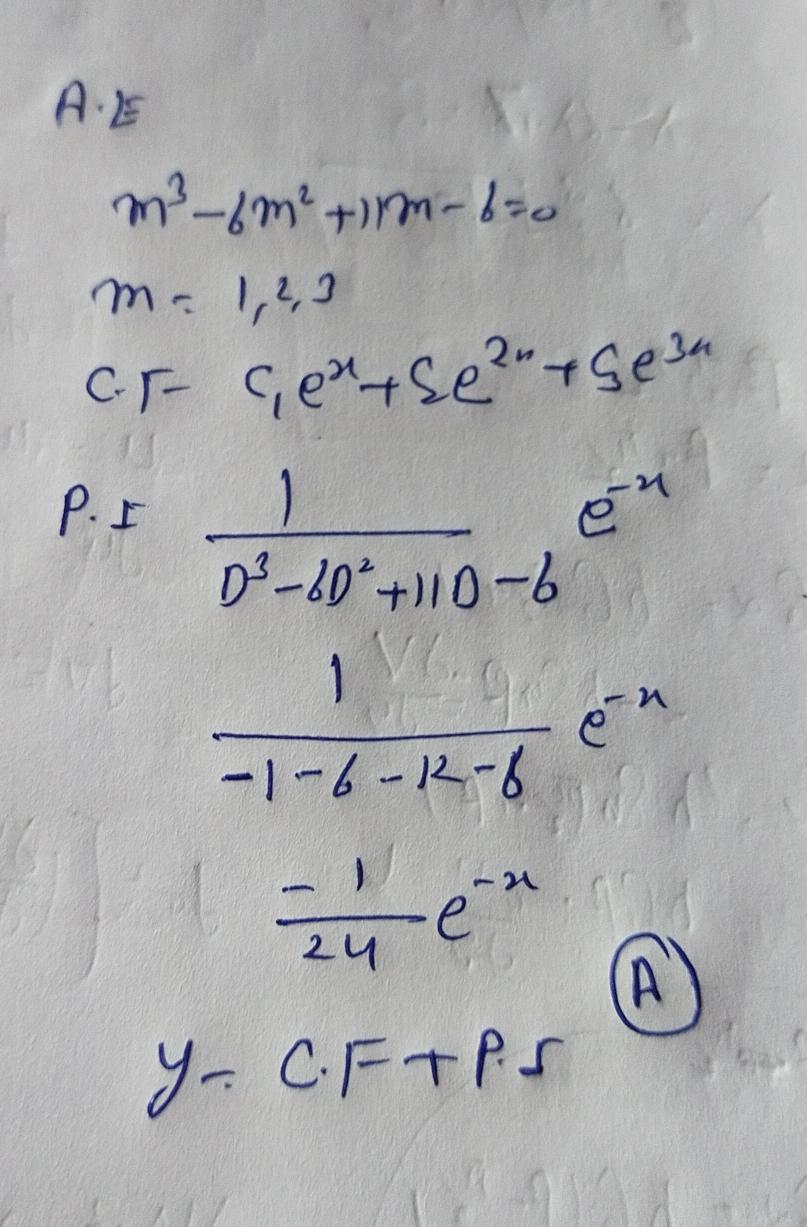 A.E
m³-6m²+11m-6=0
m = 1,2,3
C.F C₁eˣ+C₂e²ˣ+C₃e³ˣ
P.I 1/(D³-6D²+11D-6) e⁻ˣ
1/(-1-6-12-6) e⁻ˣ
-1/24 e⁻ˣ
A
y = C.F+P.I